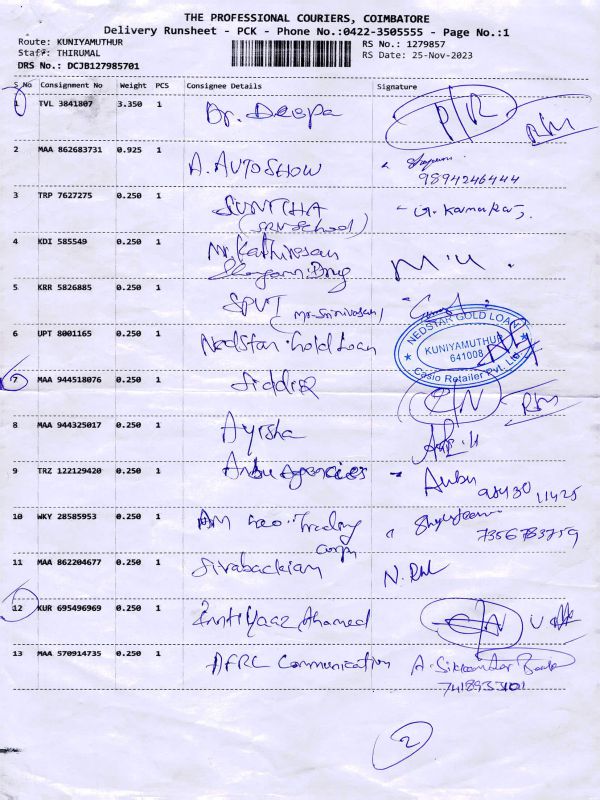 THE PROFESSIONAL COURIERS, COIMBATORE
Delivery Runsheet - PCK - Phone No.:0422-3505555 - Page No.:1
Route: KUNIYAMUTHUR
RS No.: 1279857
Staff: THIRUMAL
RS Date: 25-Nov-2023
DRS No.: DCJB127985701
S No Consignment No Weight PCS Consignee Details Signature
1 TVL 3841807 3.350 1 Dr. Deepa P/R
2 MAA 862683731 0.925 1 A. AUTOSHOW
9894246444
3 TRP 7627275 0.250 1 SUNITHA - G. Kamaraj
(SRN School)
4 KDI 585549 0.250 1 Mr. Kathiresan
5 KRR 5826885 0.250 1 SPVI
(Mr. Srinivasan)
6 UPT 8001165 0.250 1 Nedstar. Gold Loan
NEDSTAR GOLD LOAN
KUNIYAMUTHUR
641008
Casio Retailer Pvt. Ltd.
7 MAA 944518076 0.250 1 Siddik
8 MAA 944325017 0.250 1 Ayisha
9 TRZ 122129420 0.250 1 Anbu Agencies - Anbu
10 WKY 28585953 0.250 1 AM Geo. Trading
Corpn 7356783759
11 MAA 862204677 0.250 1 Sivabackiam
12 KUR 695496969 0.250 1 Imtiyaaz Ahamed
13 MAA 570914735 0.250 1 AFRL Communication A. Sikkandar
7418933101
2